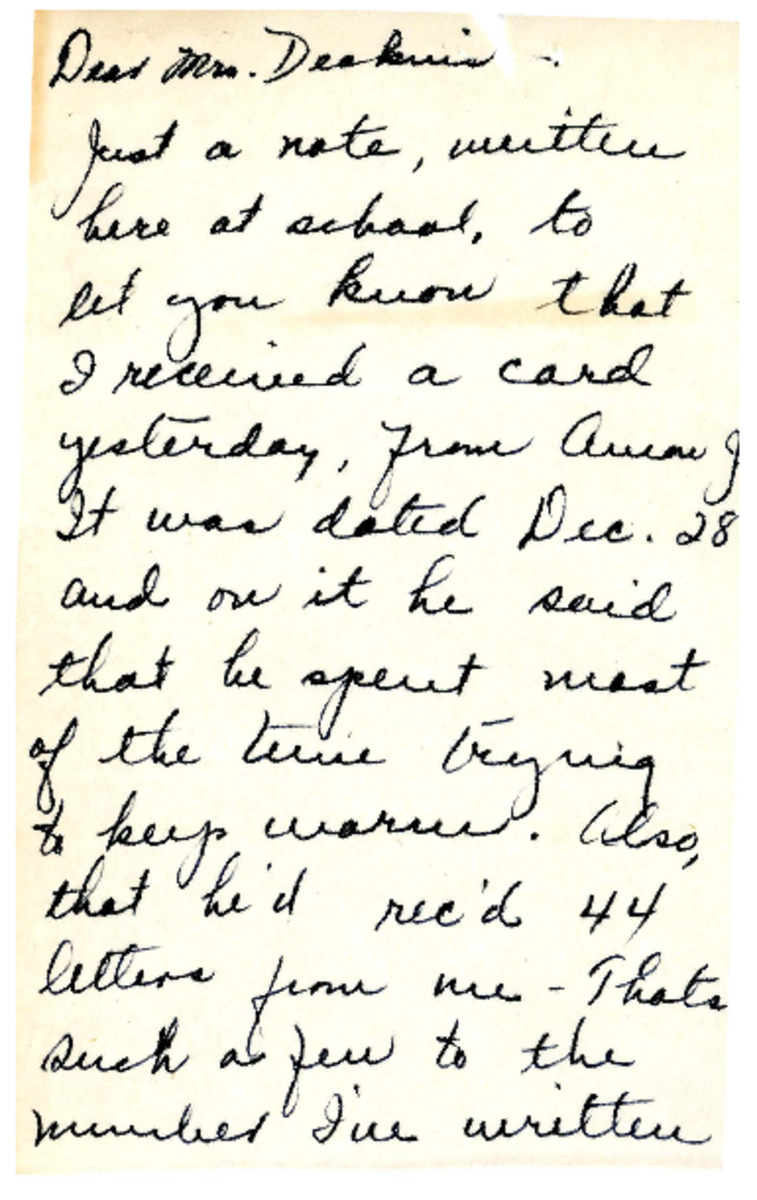 Dear Mrs. Deakins -
Just a note, written
here at school, to
let you know that
I received a card
yesterday, from Amon J
It was dated Dec. 28
and on it he said
that he spent most
of the time trying
to keep warm. Also,
that he'd rec'd 44
letters from me - Thats
such a few to the
number I've written